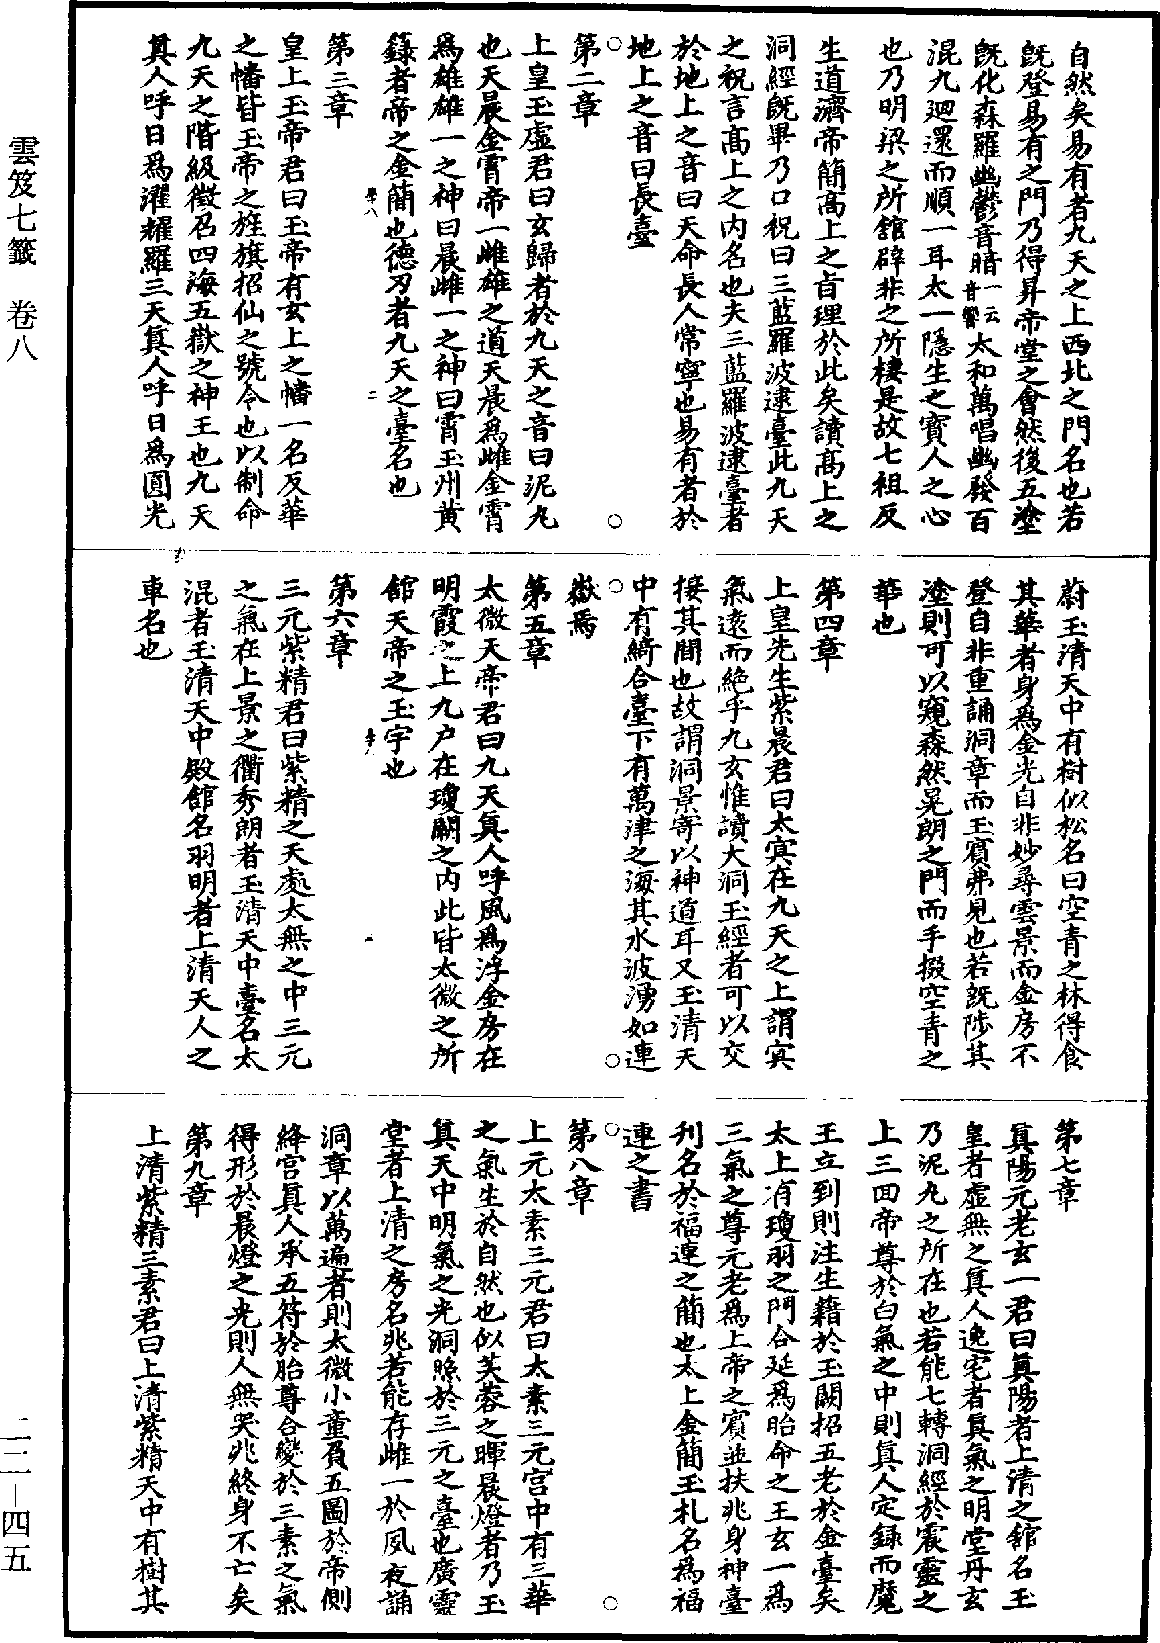 自然矣易有者九天之上西北之門名也若
既登易有之門乃得昇帝堂之會然後五塗
既化森羅幽鬱音腊一云音響太和萬唱幽發百
混九迴還而順一耳太一隱生之寶人之心
也乃明梁之所館辟非之所棲是故七祖反
生道濟帝簡高上之旨理於此矣讀高上之
洞經既畢乃口祝曰三藍羅波逮臺此九天
之祝言高上之內名也夫三藍羅波逮臺者
於地上之音曰天命長人常寧也易有者於
地上之音曰長臺
第二章
上皇玉虛君曰玄歸者於九天之音曰泥丸
也天晨金霄帝一雌雄之道天晨為雌金霄
為雄雄一之神曰晨雌一之神曰霄玉州黃
籙者帝之金簡也德刃者九天之臺名也
第三章
皇上玉帝君曰玉帝有玄上之幡一名反華
之幡皆玉帝之旌旗招仙之號令也以制命
九天之階級徵召四海五嶽之神王也九天
真人呼日為濯耀羅三天真人呼日為圓光
蔚玉清天中有樹似松名曰空青之林得食
其華者身為金光自非妙尋雲景而金房不
登自非重誦洞章而玉賓弗見也若既陟其
塗則可以窺森然晃朗之門而手掇空青之
華也
第四章
上皇先生紫晨君曰太冥在九天之上謂冥
氣遠而絕乎九玄惟讀大洞玉經者可以交
接其間也故謂洞景寄以神道耳又玉清天
中有綺合臺下有萬津之海其水波湧如連
嶽焉
第五章
太微天帝君曰九天真人呼風為浮金房在
明霞之上九戶在瓊闕之內此皆太微之所
館天帝之玉宇也
第六章
三元紫精君曰紫精之天處太無之中三元
之氣在上景之衢秀朗者玉清天中臺名太
混者玉清天中殿館名羽明者上清天人之
車名也
第七章
真陽元老玄一君曰真陽者上清之館名玉
皇者虛無之真人逸宅者真氣之明堂丹玄
乃泥丸之所在也若能七轉洞經於震靈之
上三回帝尊於白氣之中則真人定錄而魔
王立到則注生籍於玉闕招五老於金臺矣
太上有瓊羽之門合延為胎命之王玄一為
三氣之尊元老為上帝之賓並扶兆身神臺
刊名於福連之簡也太上金簡玉札名為福
連之書
第八章
上元太素三元君曰太素三元宮中有三華
之氣生於自然也似芙蓉之暉晨燈者乃玉
真天中明氣之光洞照於三元之臺也廣靈
堂者上清之房名兆若能存雌一於夙夜誦
洞章以萬遍者則太微小童負五圖於帝側
絳宮真人承五符於胎尊合變於三素之氣
得形於晨燈之光則人無哭兆終身不亡矣
第九章
上清紫精三素君曰上清紫精天中有樹其
雲笈七籤 卷八
二二—四五